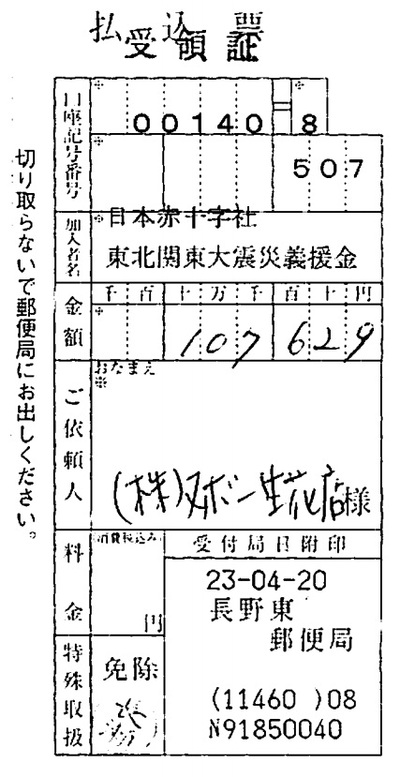 払込票
受領証
切り取らないで郵便局にお出しください。
口座記号番号
00140=8
507
加入者名
※日本赤十字社
東北関東大震災義援金
金額
千百十万千百十円
※
107629
ご依頼人
おなまえ
※
(株)ヌボー生花店様
料金
(消費税込み)
円
受付局日附印
23-04-20
長野東
郵便局
(11460 )08
N91850040
特殊取扱
免除